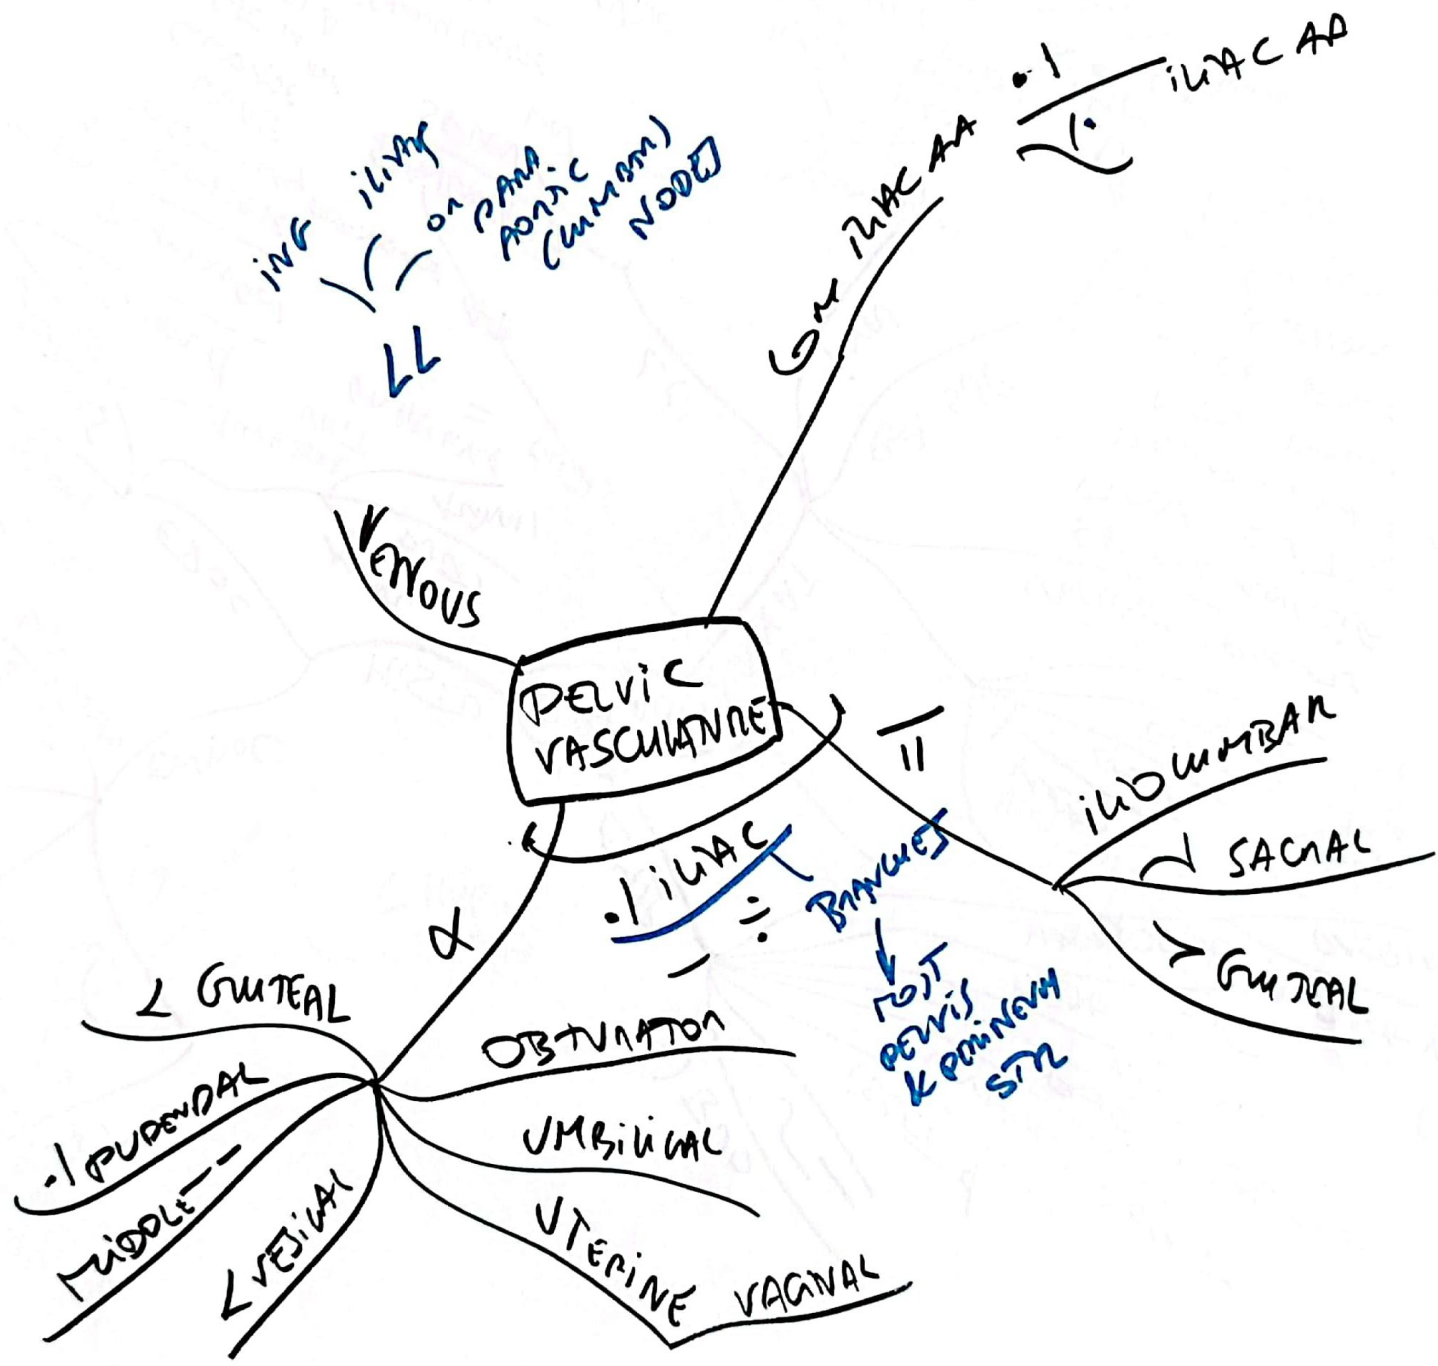 .| ILIAC AA
|.
COM ILIAC AA
ING ILIAC
OR PARA
AORTIC
(LUMBAR)
NODES
LL
VENOUS
PELVIC
VASCULATURE
.| ILIAC
BRANCHES
MOST
PELVIS
& PERINEUM
STR
ILIOLUMBAR
SACRAL
> GLUTEAL
α
< GLUTEAL
.| PUDENDAL
MIDDLE --
< VESICAL
OBTURATOR
UMBILICAL
UTERINE VAGINAL